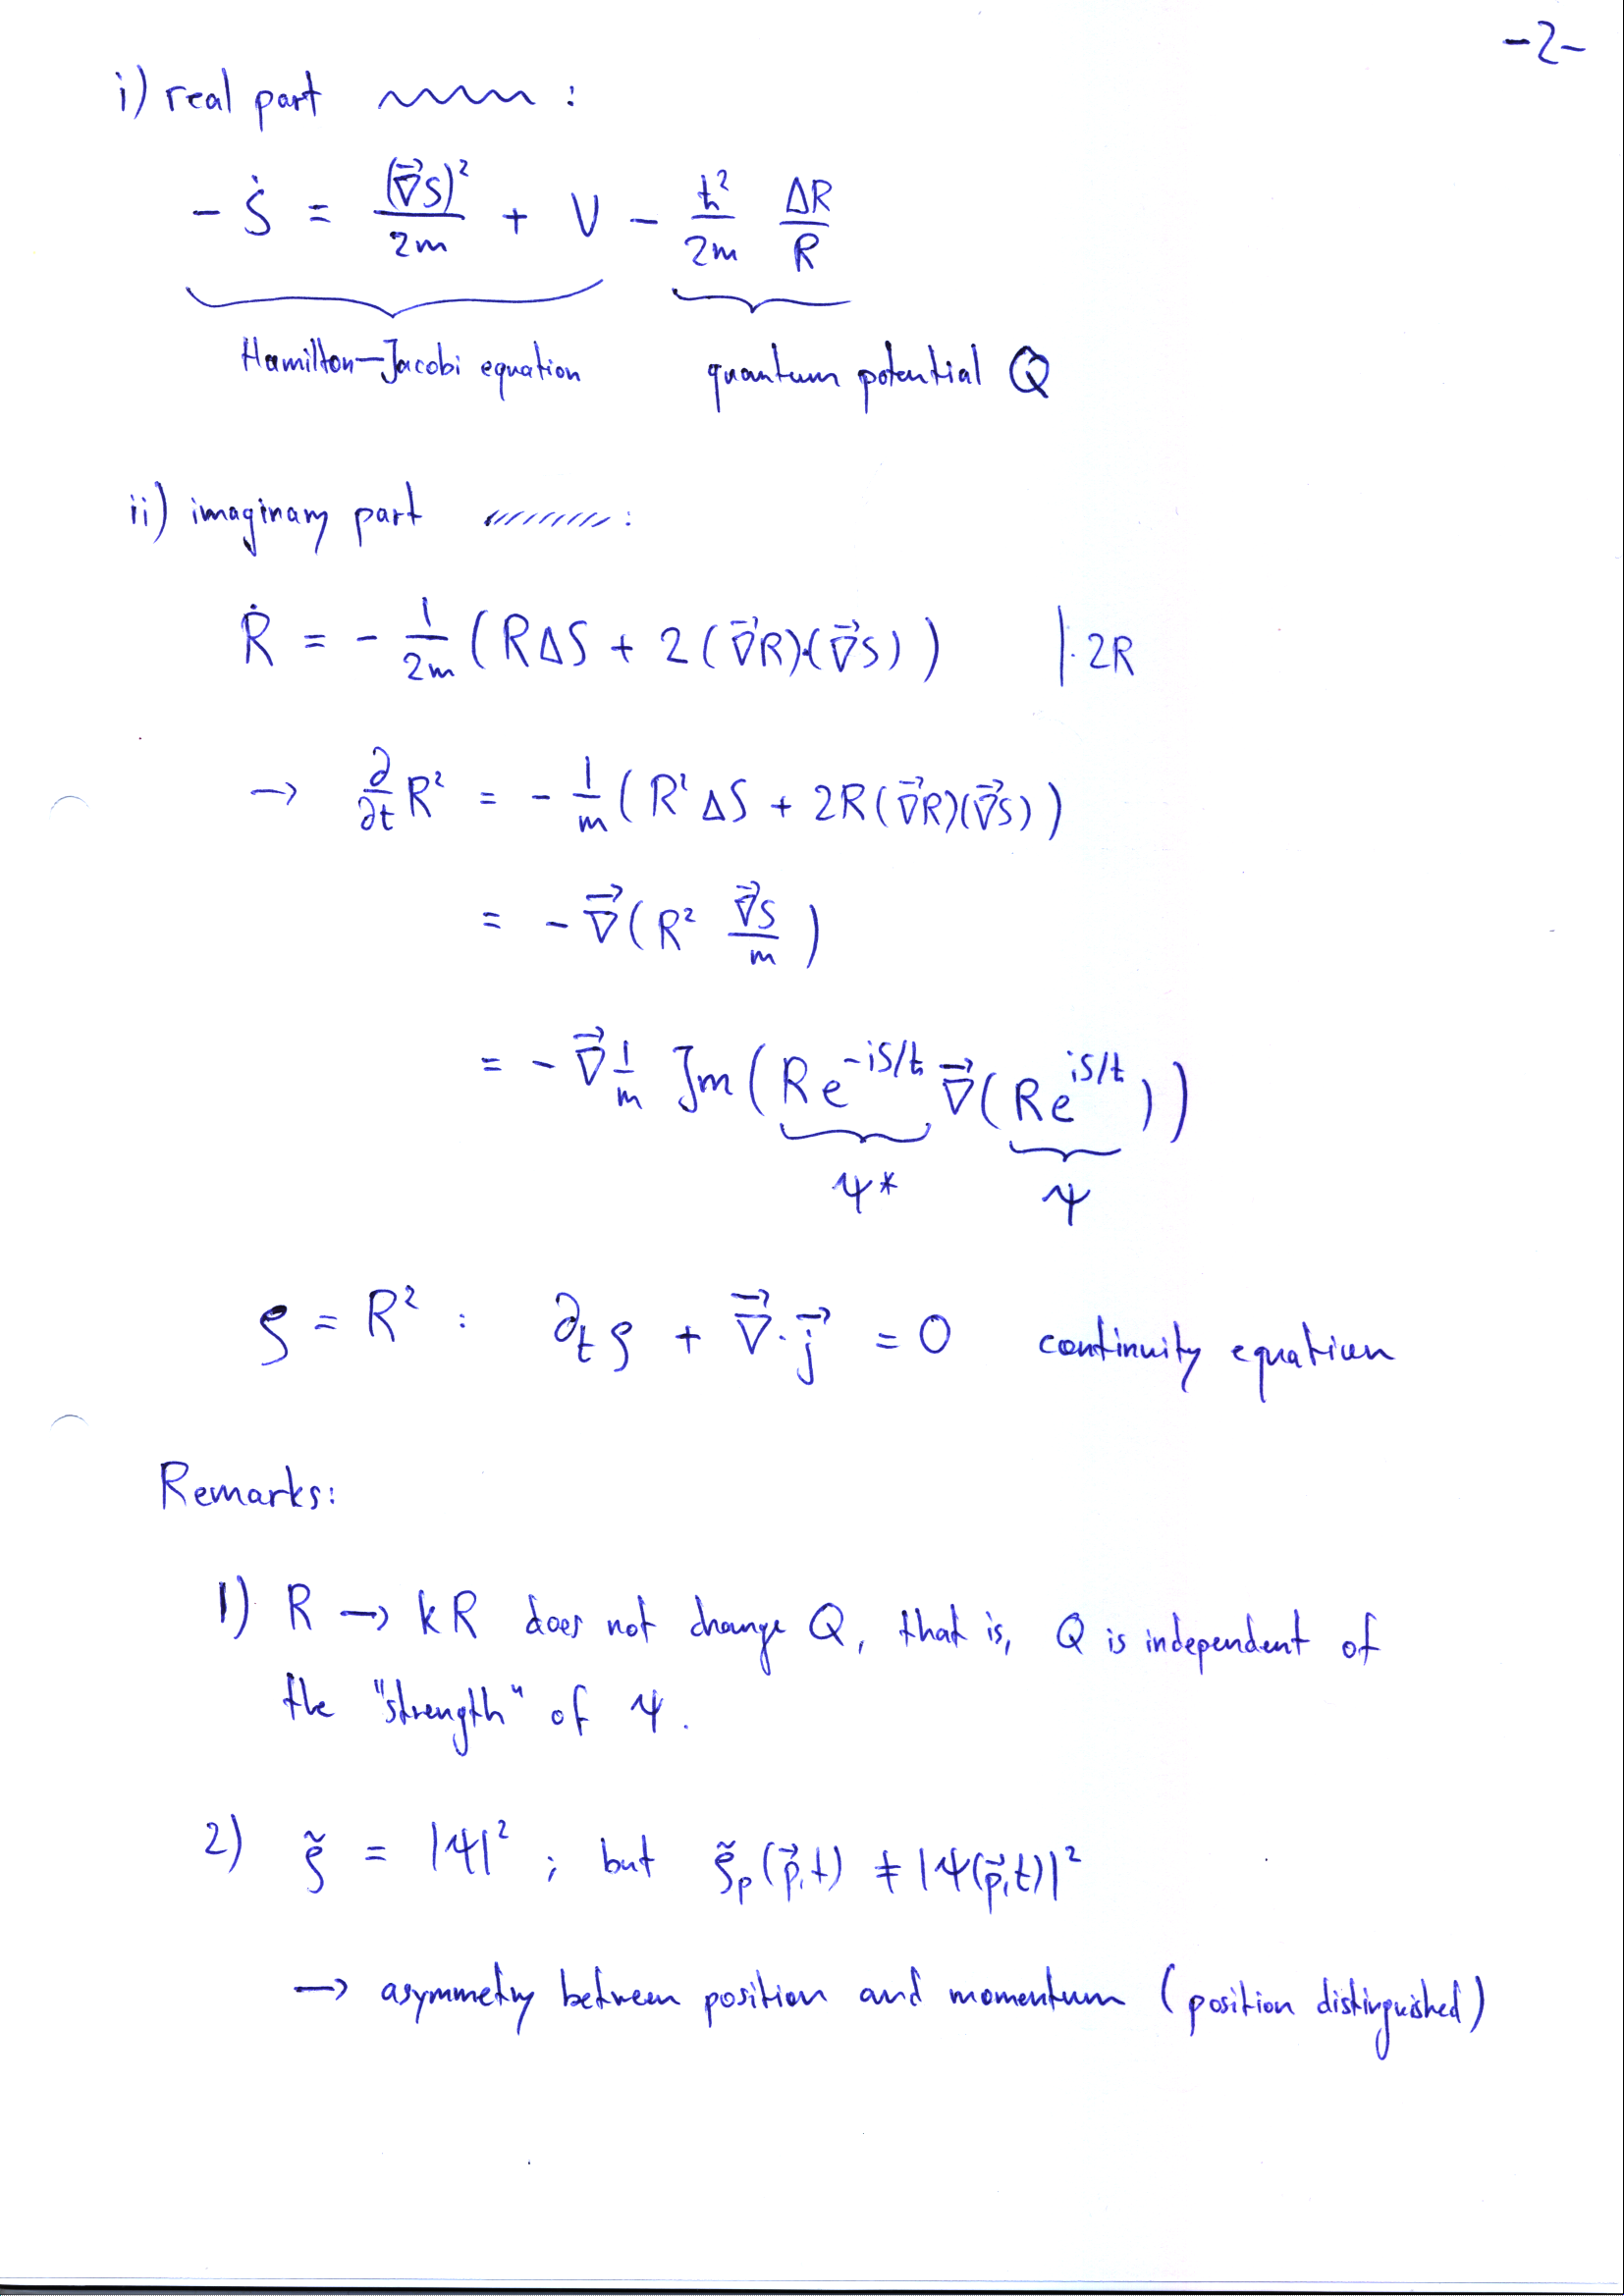 -2-
i) real part ~~~~ :
- Ṡ = (∇⃗S)²/2m + V - ħ²/2m ΔR/R
Hamilton-Jacobi equation quantum potential Q
ii) imaginary part ///////// :
Ṙ = - 1/2m (RΔS + 2(∇⃗R)·(∇⃗S)) |·2R
→ ∂/∂t R² = - 1/m (R²ΔS + 2R(∇⃗R)(∇⃗S))
= - ∇⃗(R² ∇⃗S/m)
= - ∇⃗ 1/m Im(Re^{-iS/ħ} ∇⃗(Re^{iS/ħ}))
ψ* ψ
ρ = R² : ∂ₜρ + ∇⃗·j⃗ = 0 continuity equation
Remarks:
1) R → kR does not change Q, that is, Q is independent of
the "strength" of ψ.
2) ρ̃ = |ψ|² ; but ρ̃ₚ(p⃗,t) ≠ |ψ(p⃗,t)|²
→ asymmetry between position and momentum (position distinguished)